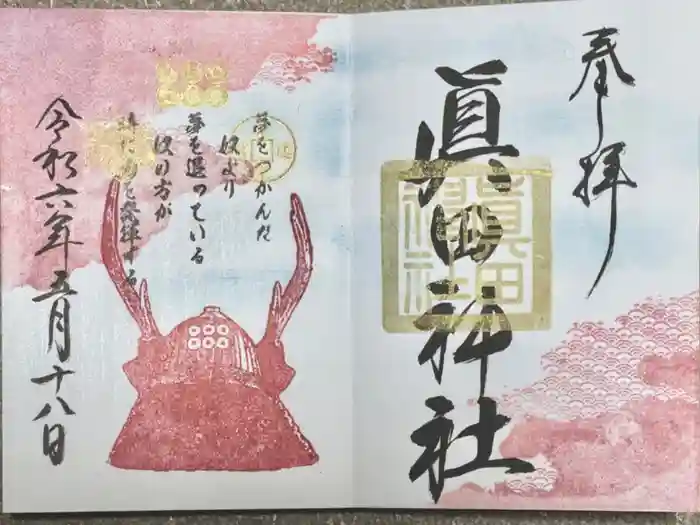 奉拝
眞田神社
眞田
神社
夢をつかんだ
奴より
夢を追っている
奴の方が
時に力を発揮する
令和六年五月十八日